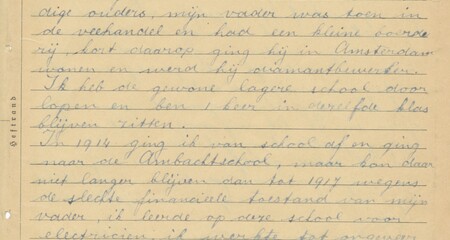 dige ouders, mijn vader was toen in
de veehandel en had een kleine boerde
rij, kort daarop ging hij in Amsterdam
wonen en werd hij diamantbewerker.
Ik heb de gewone lagere school door
lopen en ben 1 keer in dezelfde klas
blijven zitten.
In 1914 ging ik van school af en ging
naar de Ambachtschool, maar kon daar
niet langer blijven dan tot 1917 wegens
de slechte financieele toestand van mijn
vader, ik leerde op deze school voor
electricien, ik werkte tot ongeveer
Heftrand